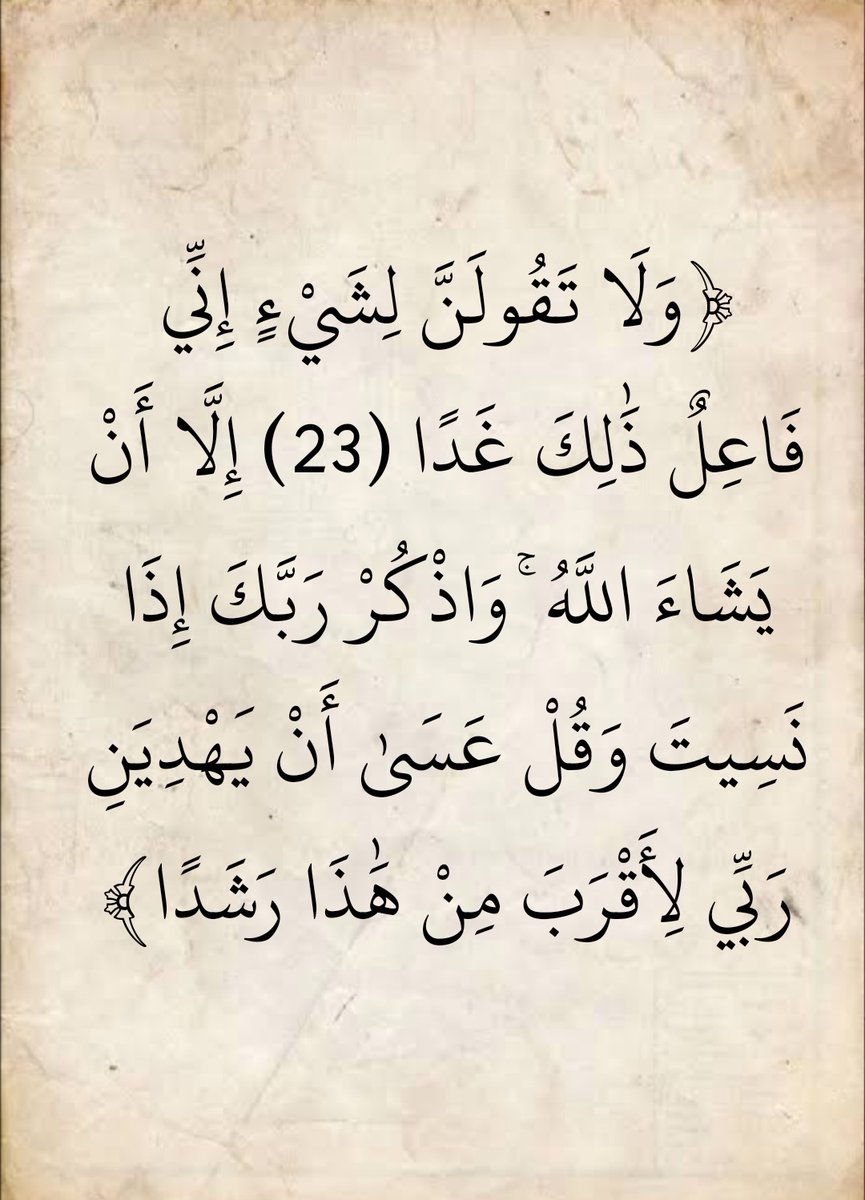 ﴿وَلَا تَقُولَنَّ لِشَيْءٍ إِنِّي
فَاعِلٌ ذَٰلِكَ غَدًا (23) إِلَّا أَنْ
يَشَاءَ اللَّهُ ۚ وَاذْكُرْ رَبَّكَ إِذَا
نَسِيتَ وَقُلْ عَسَىٰ أَنْ يَهْدِيَنِ
رَبِّي لِأَقْرَبَ مِنْ هَٰذَا رَشَدًا﴾